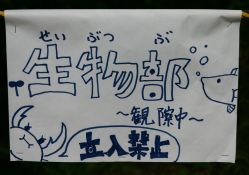 せいぶつぶ
生物部
～観察中～
立入禁止